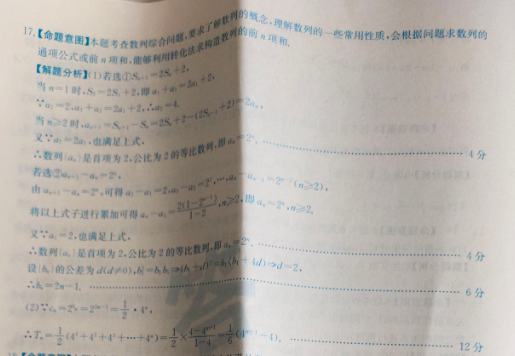 17.【命题意图】本题考查数列综合问题,要求了解数列的概念,理解数列的一些常用性质,会根据问题求数列的
通项公式或前n项和,能够利用转化法求构造数列的前n项和.
【解题分析】(1)若选①Sₙ₊₁=2Sₙ+2,
当n=1时,S₂=2S₁+2,即a₁+a₂=2a₁+2,
∵a₁=2,a₁+a₂=2a₁+2,∴a₂=4.
当n≥2时,aₙ₊₁=Sₙ₊₁-Sₙ=2Sₙ+2-(2Sₙ₋₁+2)=2aₙ,
又∵a₂=2a₁,也满足上式,
∴数列{aₙ}是首项为2,公比为2的等比数列,即aₙ=2ⁿ. 4分
若选②aₙ₊₁-aₙ=2ⁿ,
由aₙ₊₁-aₙ=2ⁿ,可得a₂-a₁=2,a₃-a₂=2²,…,aₙ-aₙ₋₁=2ⁿ⁻¹(n≥2),
将以上式子进行累加可得aₙ-a₁=2(1-2ⁿ⁻¹)/1-2,n≥2,即aₙ=2ⁿ,n≥2,
又∵a₁=2,也满足上式,
∴数列{aₙ}是首项为2,公比为2的等比数列,即aₙ=2ⁿ. 4分
设{bₙ}的公差为d(d≠0),b₂²=b₁b₅⇒(b₁+d)²=b₁(b₁+4d)⇒d=2,
∴bₙ=2n-1. 6分
(2)∵cₙ=2ᵇⁿ=2²ⁿ⁻¹=1/2·4ⁿ,
∴Tₙ=1/2(4¹+4²+4³+…+4ⁿ)=1/2×4-4ⁿ⁺¹/1-4=1/6(4ⁿ⁺¹-4). 12分